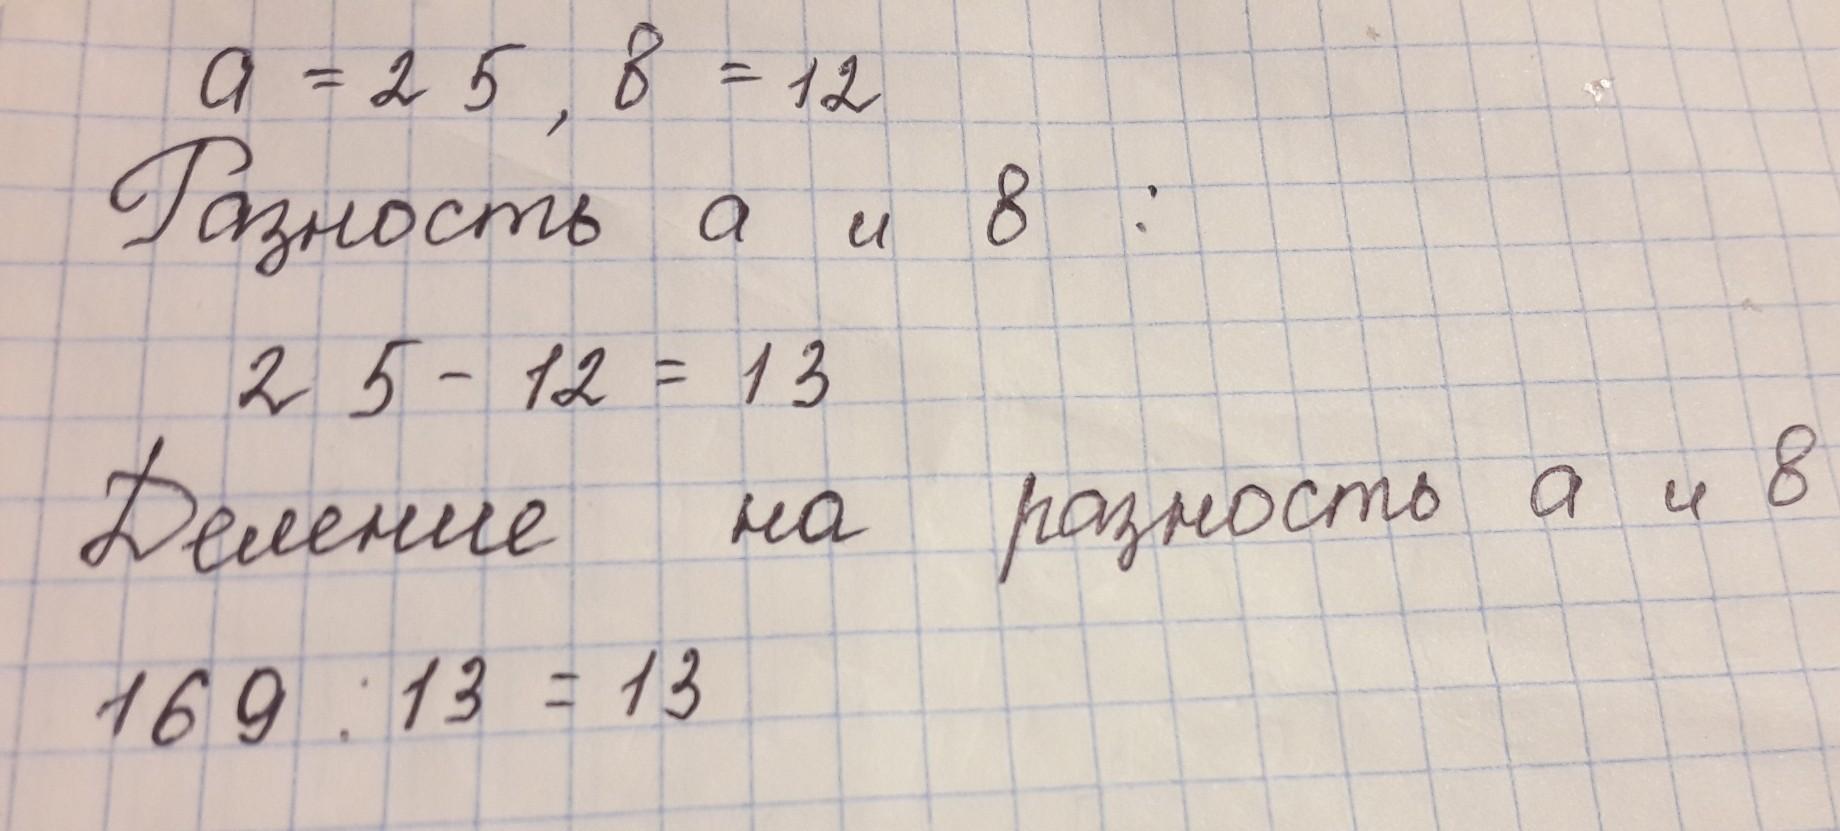 а = 25, в = 12
Разность а и в :
25 - 12 = 13
Деление на разность а и в
169 : 13 = 13